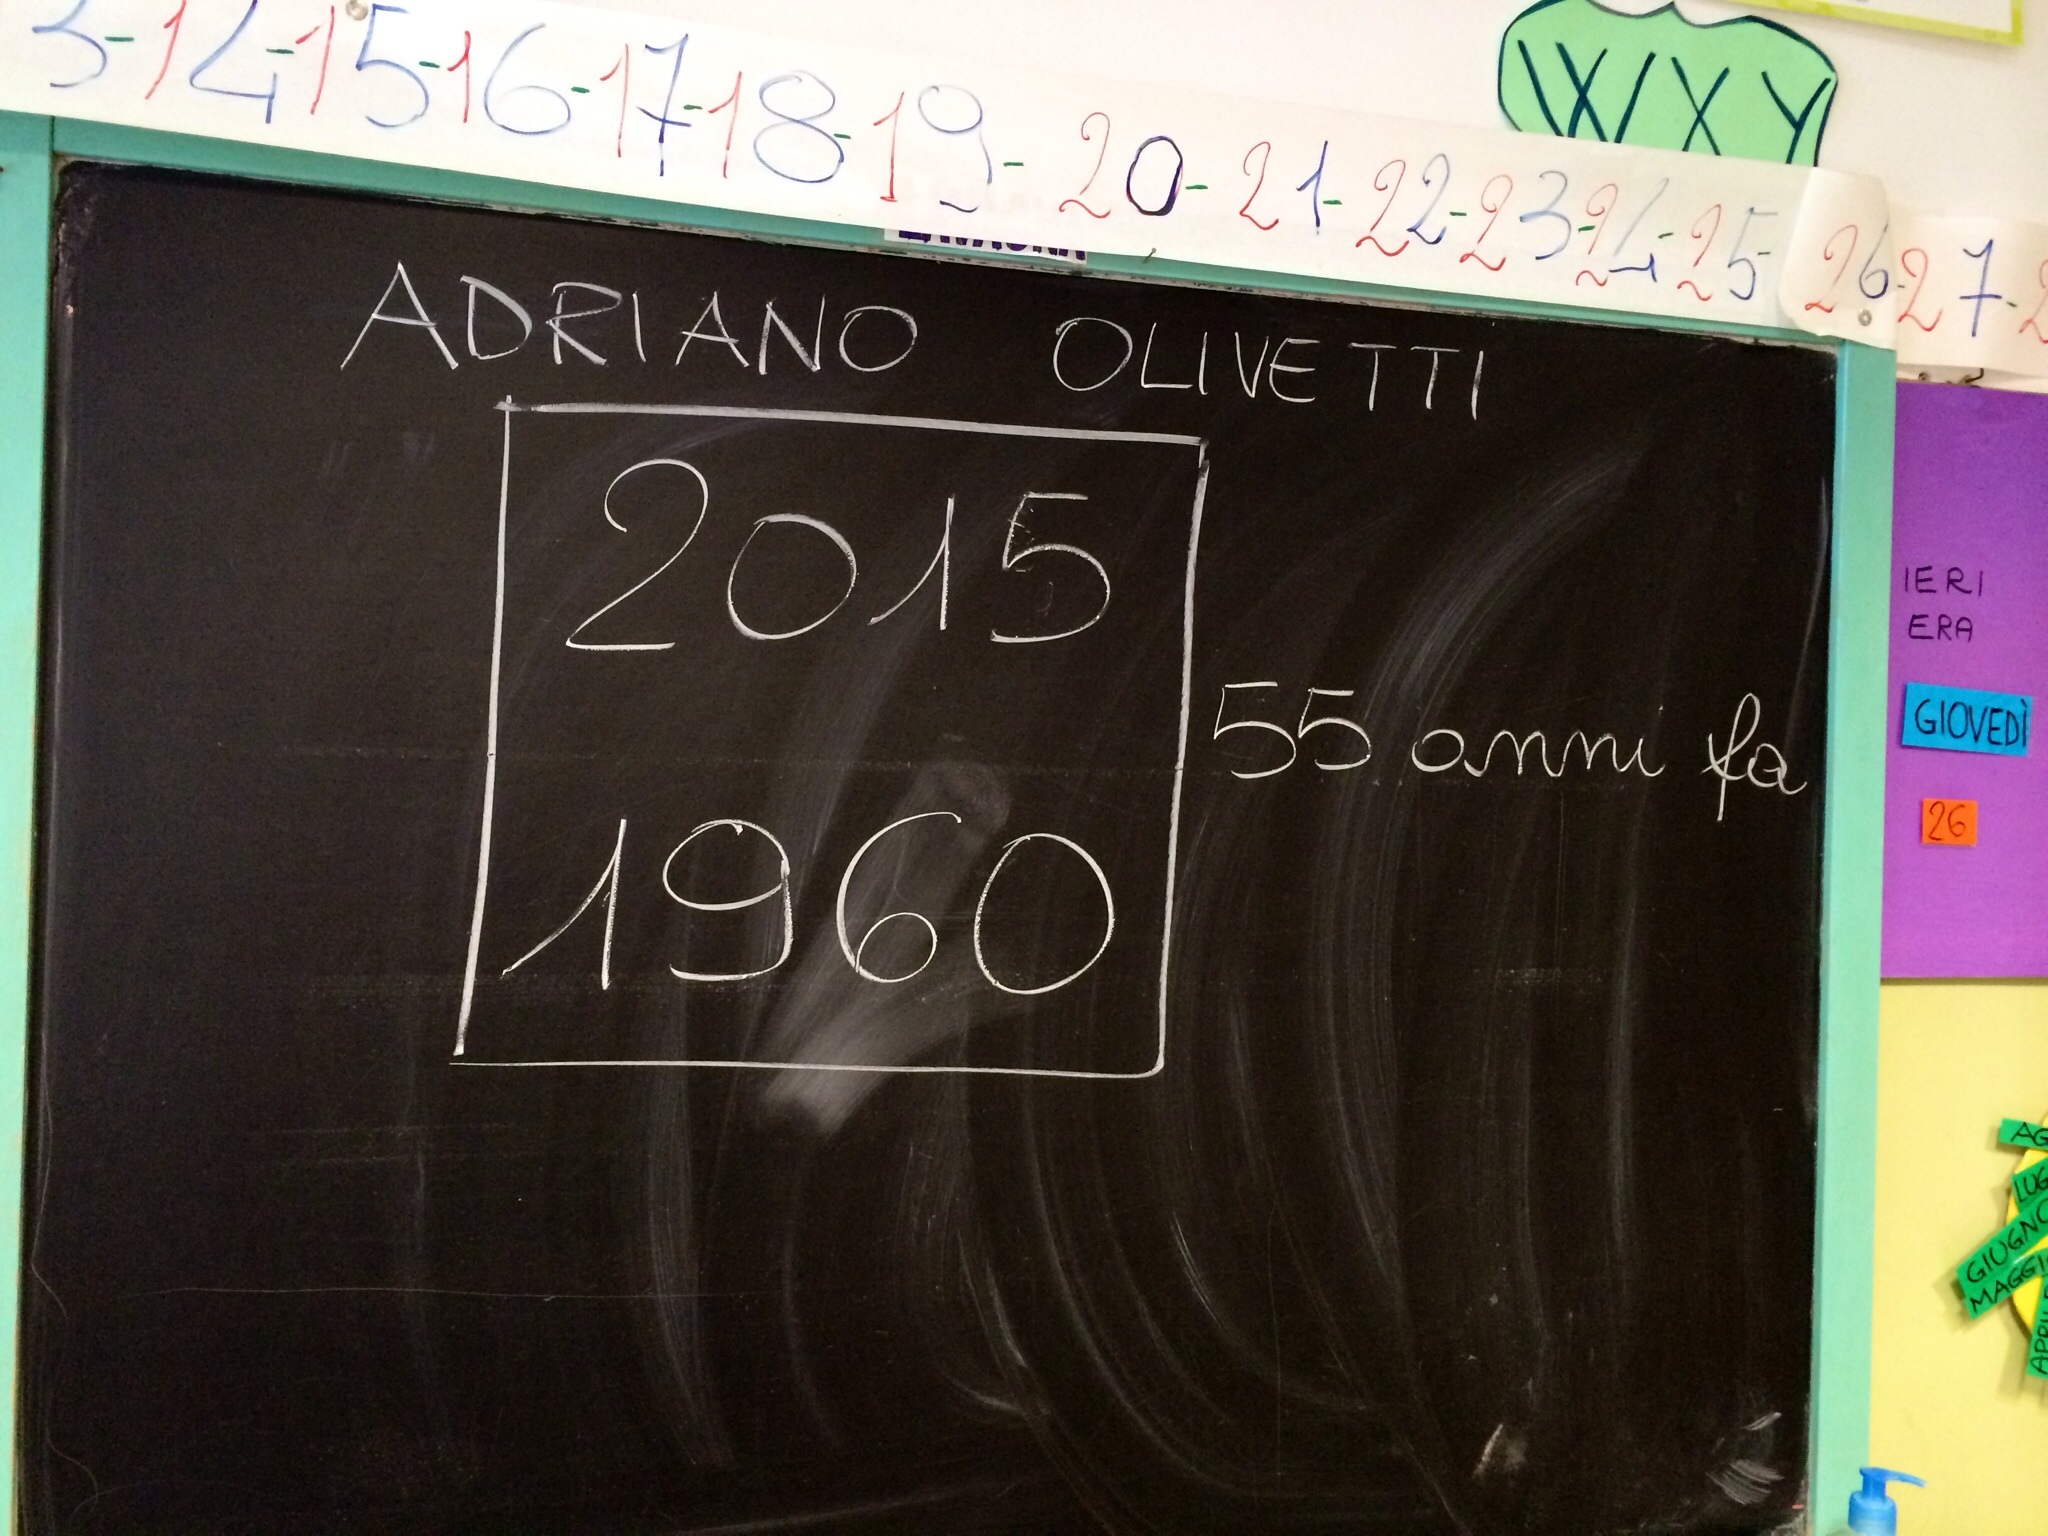 3-14-15-16-17-18-19-20-21-22-23-24-25-26-27-2
WXY
LAVAGNA
ADRIANO OLIVETTI
2015
55 anni fa
1960
IERI
ERA
GIOVEDÌ
26
AG
LUG
GIUGNO
MAGGI
APRI